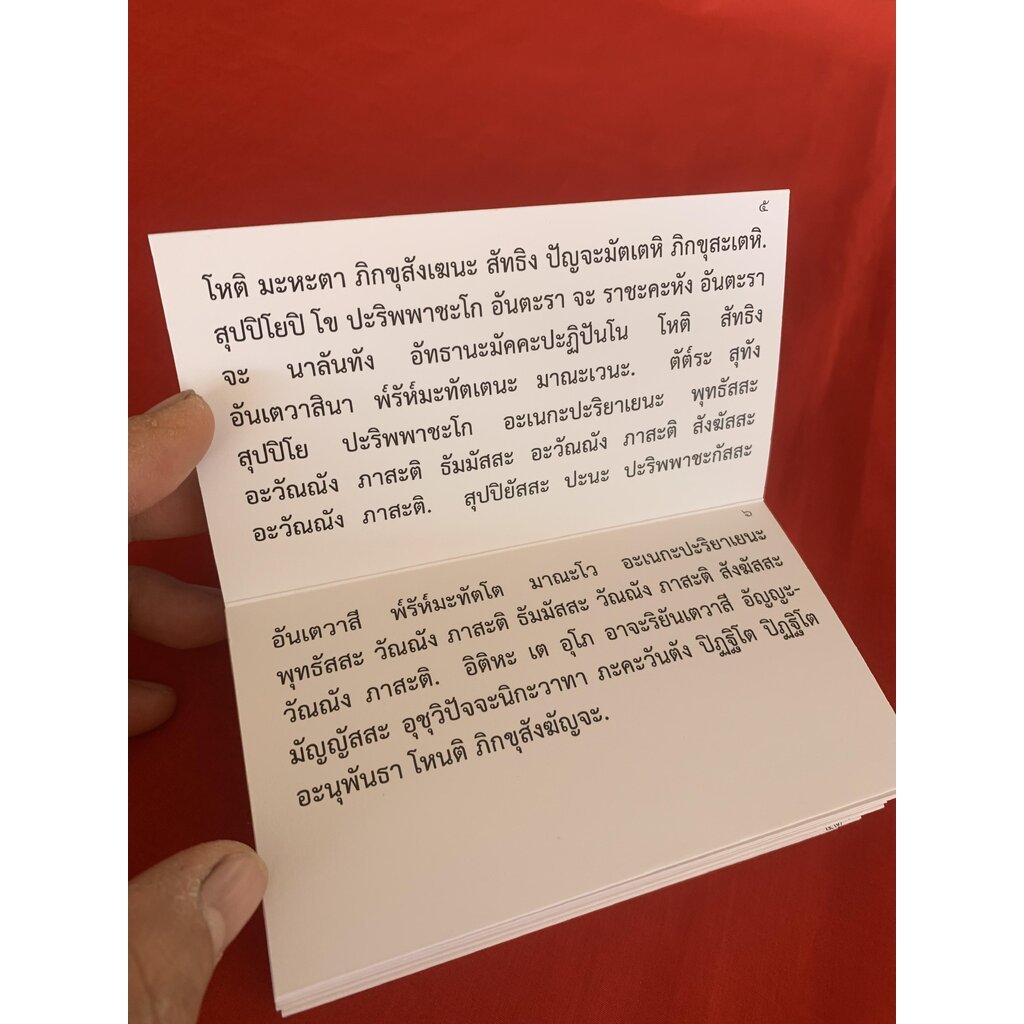 ๕
โหติ มะหะตา ภิกขุสังเฆนะ สัทธิง ปัญจะมัตเตหิ ภิกขุสะเตหิ.
สุปปิโยปิ โข ปะริพพาชะโก อันตะรา จะ ราชะคะหัง อันตะรา
จะ นาลันทัง อัทธานะมัคคะปะฏิปันโน โหติ สัทธิง
อันเตวาสินา พ๎รัห๎มะทัตเตนะ มาณะเวนะ. ตัต๎ระ สุทัง
สุปปิโย ปะริพพาชะโก อะเนกะปะริยาเยนะ พุทธัสสะ
อะวัณณัง ภาสะติ ธัมมัสสะ อะวัณณัง ภาสะติ สังฆัสสะ
อะวัณณัง ภาสะติ. สุปปิยัสสะ ปะนะ ปะริพพาชะกัสสะ
๖
อันเตวาสี พ๎รัห๎มะทัตโต มาณะโว อะเนกะปะริยาเยนะ
พุทธัสสะ วัณณัง ภาสะติ ธัมมัสสะ วัณณัง ภาสะติ สังฆัสสะ
วัณณัง ภาสะติ. อิติหะ เต อุโภ อาจะริยันเตวาสี อัญญะ-
มัญญัสสะ อุชุวิปัจจะนิกะวาทา ภะคะวันตัง ปิฏฐิโต ปิฏฐิโต
อะนุพันธา โหนติ ภิกขุสังฆัญจะ.